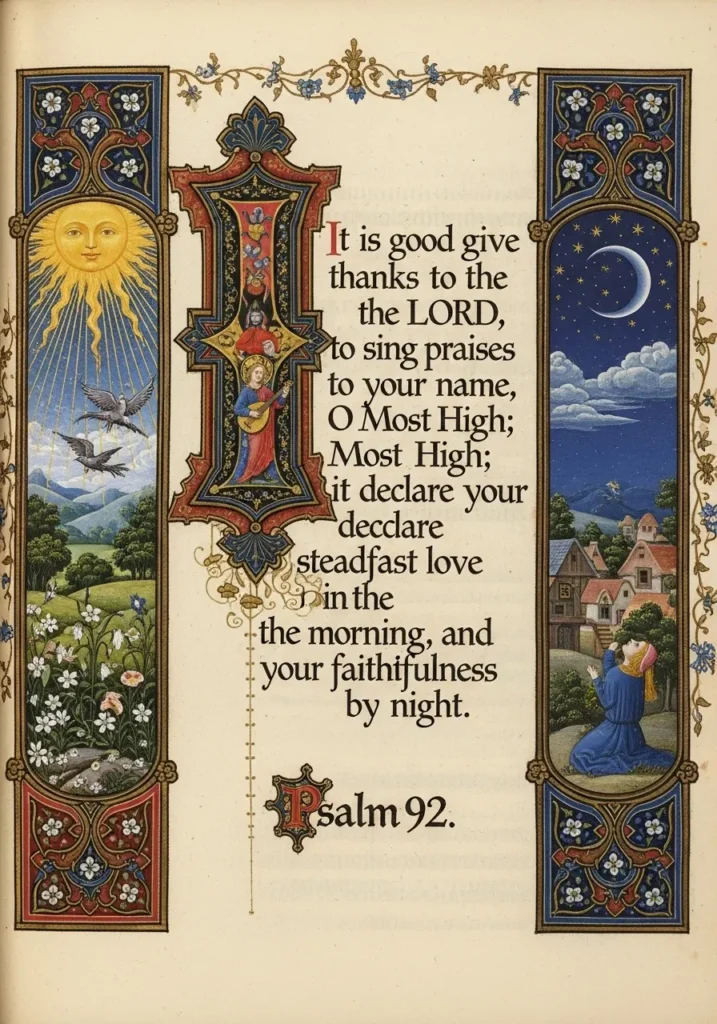 It is good give
thanks to the
the LORD,
to sing praises
to your name,
O Most High;
Most High;
it declare your
decclare
steadfast love
in the
the morning, and
your faithfulness
by night.
Psalm 92.